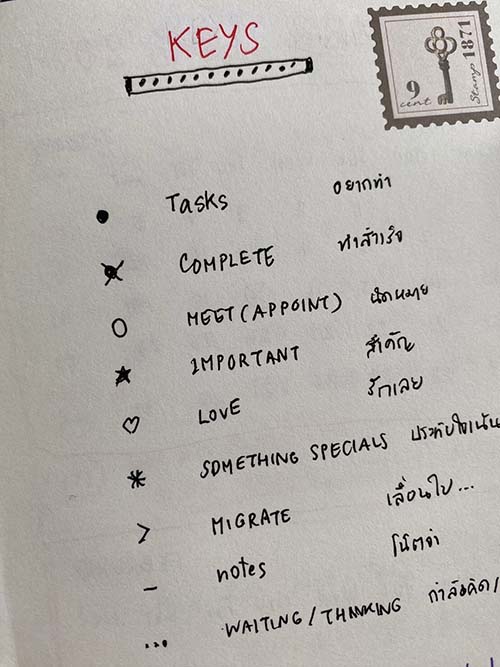 KEYS
9 cent
Stamp 1871
• Tasks อยากทำ
COMPLETE ทำสำเร็จ
O MEET (APPOINT) นัดหมาย
★ IMPORTANT สำคัญ
♡ LOVE รักเลย
* SOMETHING SPECIALS ประทับใจเน้น
> MIGRATE เลื่อนไป...
– notes โน้ตจ้า
... WAITING / THINKING กำลังคิด/